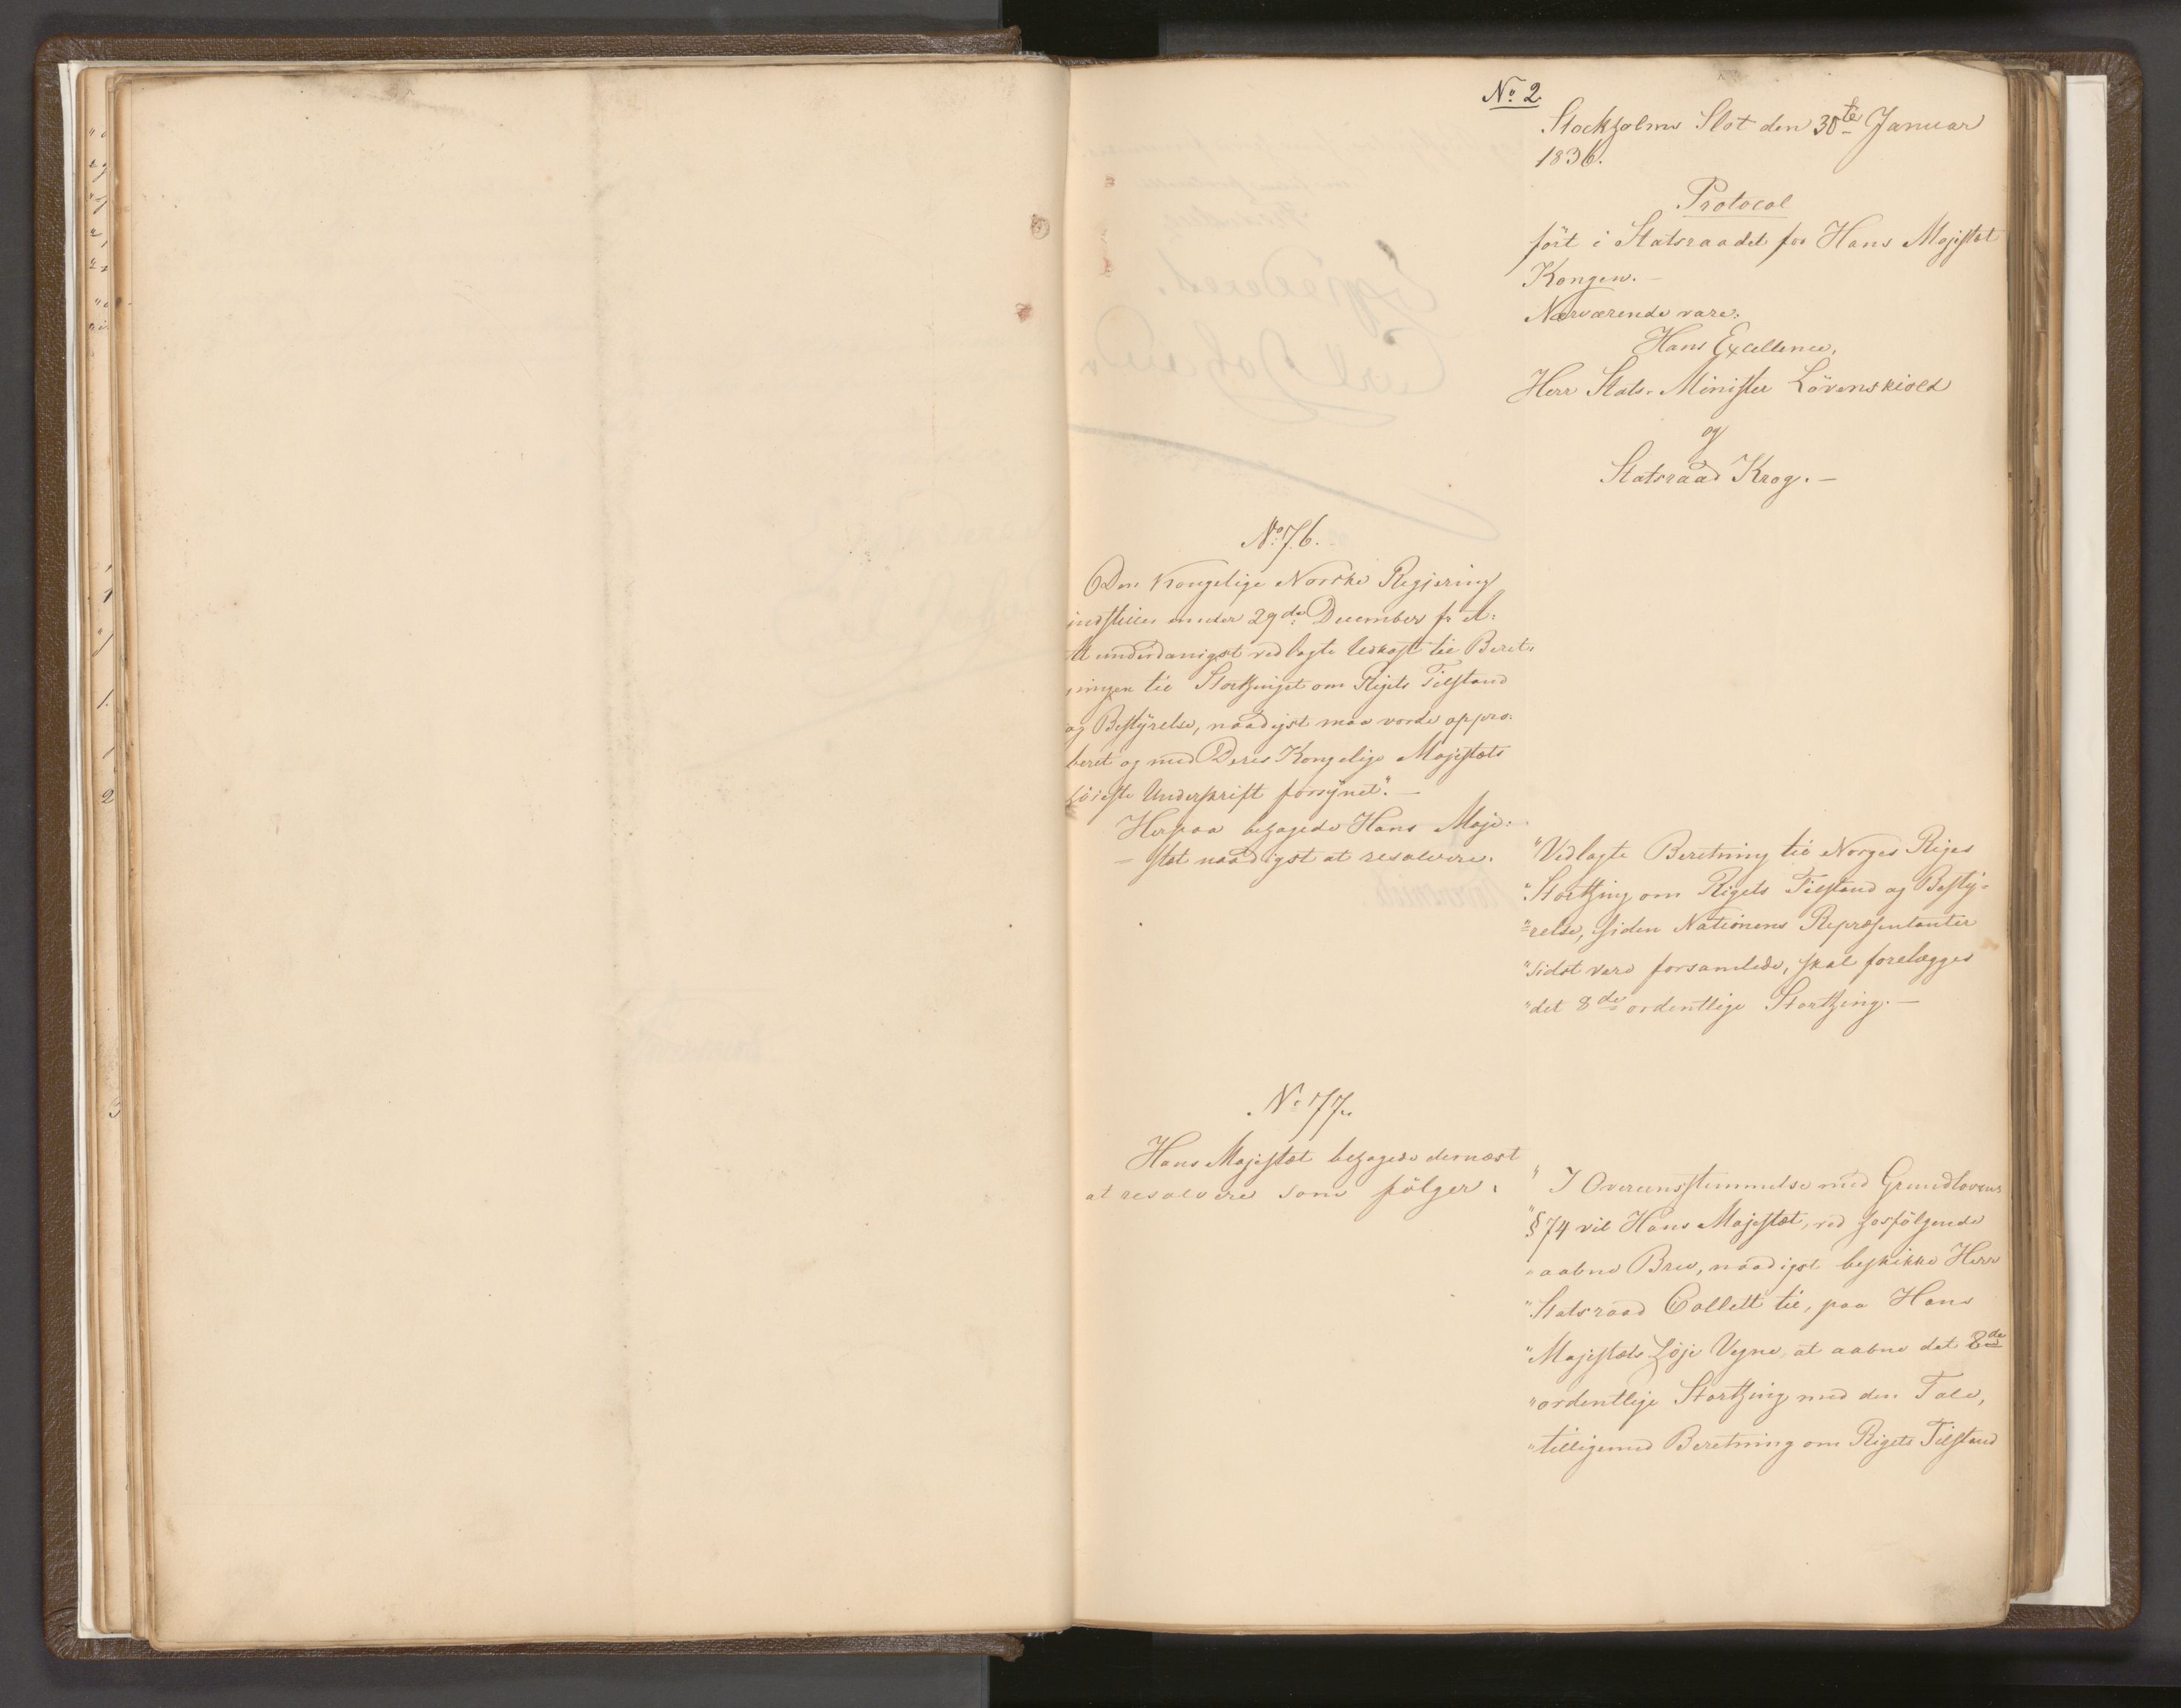 No 2
Stockholms Slot den 30te Januar
1836.
Protocol
fört i Statsraadet for Hans Majestæt
Kongen.-
Nærværende vare:
Hans Excellence,
Herr Stats-Minister Lövenskiold
og
Statsraad Krog.-
No 76.
Den Kongelige Norske Regjering
indstiller under 29de December f. A:
At underdanigst vedlagte Udkast til Beret-
ningen til Storthinget om Rigets Tilstand
og Bestyrelse, naadigst maa vorde appro-
beret og med Deres Kongelige Majestæts
höieste Underskrift forsynet".-
Herpaa behagede Hans Maje-
- stæt naadigst at resolvere:
"Vedlagte Beretning til Norges Riges
"Storthing om Rigets Tilstand og Besty-
"relse, siden Nationens Repræsentanter
"sidst vare forsamlede, skal forelægges
"det 8de ordentlige Storthing.-
No 77.
Hans Majestæt behagede dernæst
at resolvere som fölger:
"I Overeensstemmelse med Grundlovens
"§ 74 vil Hans Majestæt, ved hosfölgende
"aabne Brev, naadigst beskikke Herr
"Statsraad Collett til, paa Hans
"Majestæts Höje Vegne, at aabne det 8de
"ordentlige Storthing med den Tale,
"tilligemed Beretning om Rigets Tilstand